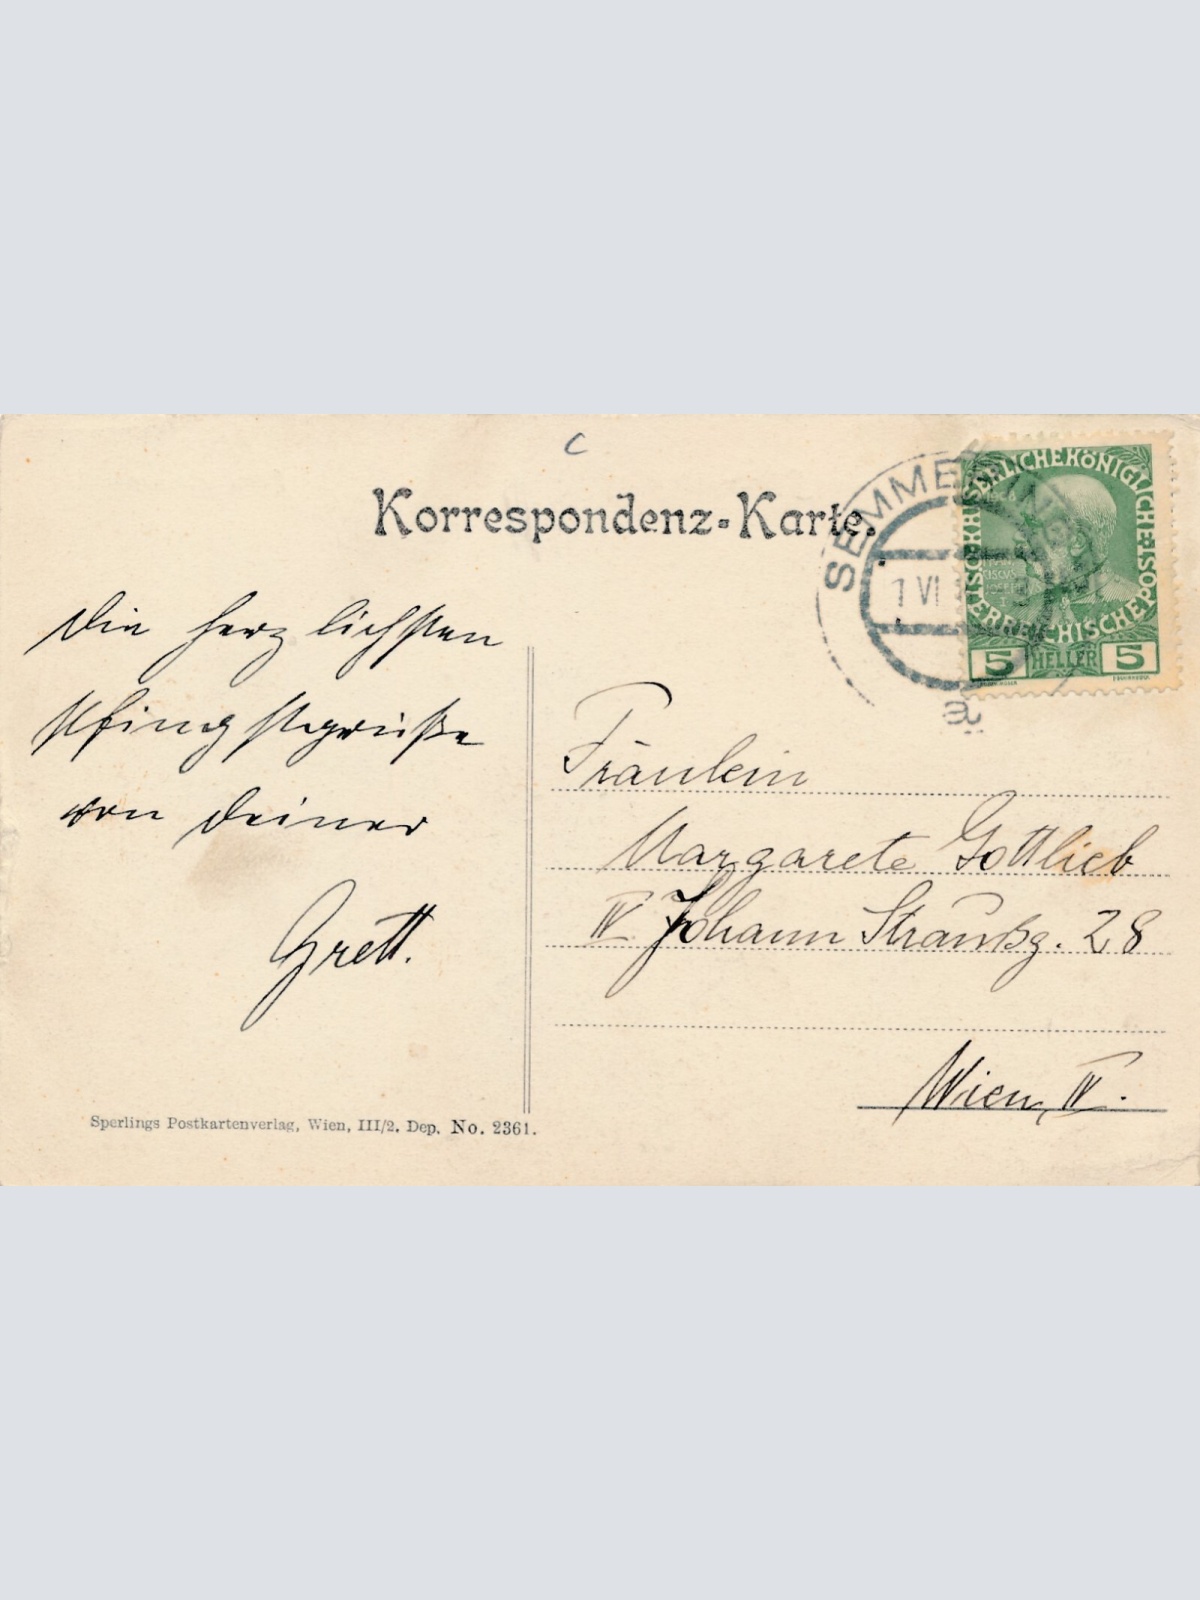 C
Korrespondenz-Karte.
SEMME
1 VI
ae
KAISERLICHE KÖNIGLICHE ÖSTERREICHISCHE POST
1908
5 HELLER 5
Die herzlichsten
Pfingstgrüße
von Deiner
Grett.
Fräulein
Margarete Gottlieb
IV Johann Straußg. 28
Wien, IV.
Sperlings Postkartenverlag, Wien, III/2. Dep. No. 2361.